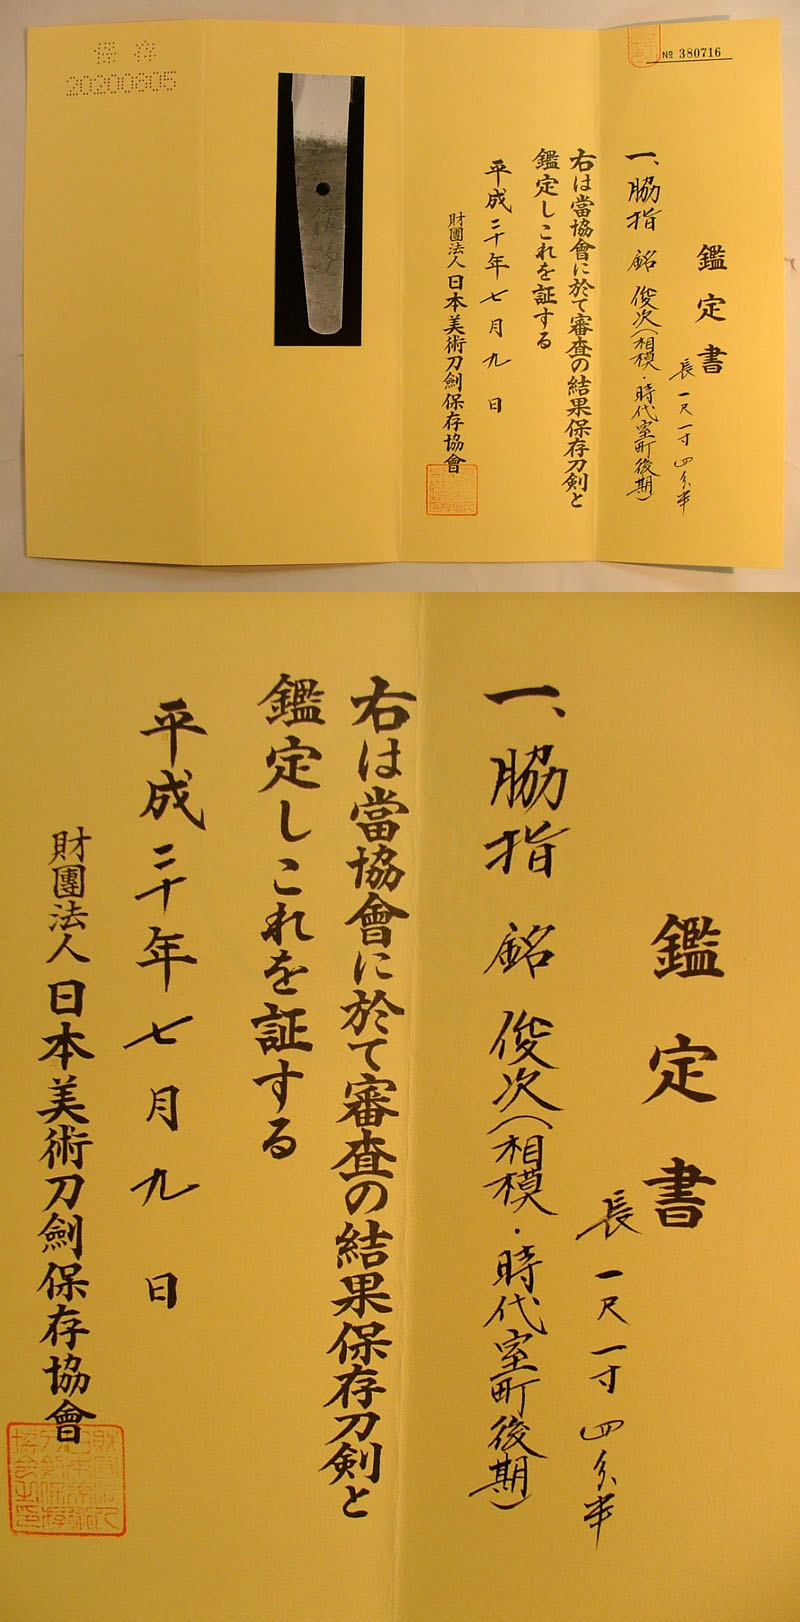 保存
20200805
№ 380716
鑑定書
長一尺一寸四分半
一、脇指 銘 俊次(相模・時代室町後期)
右は當協會に於て審査の結果保存刀剣と
鑑定しこれを証する
平成二十年七月九日
財團法人日本美術刀劍保存協會
鑑定書
長一尺一寸四分半
一、脇指 銘 俊次(相模・時代室町後期)
右は當協會に於て審査の結果保存刀剣と
鑑定しこれを証する
平成二十年七月九日
財團法人日本美術刀劍保存協會